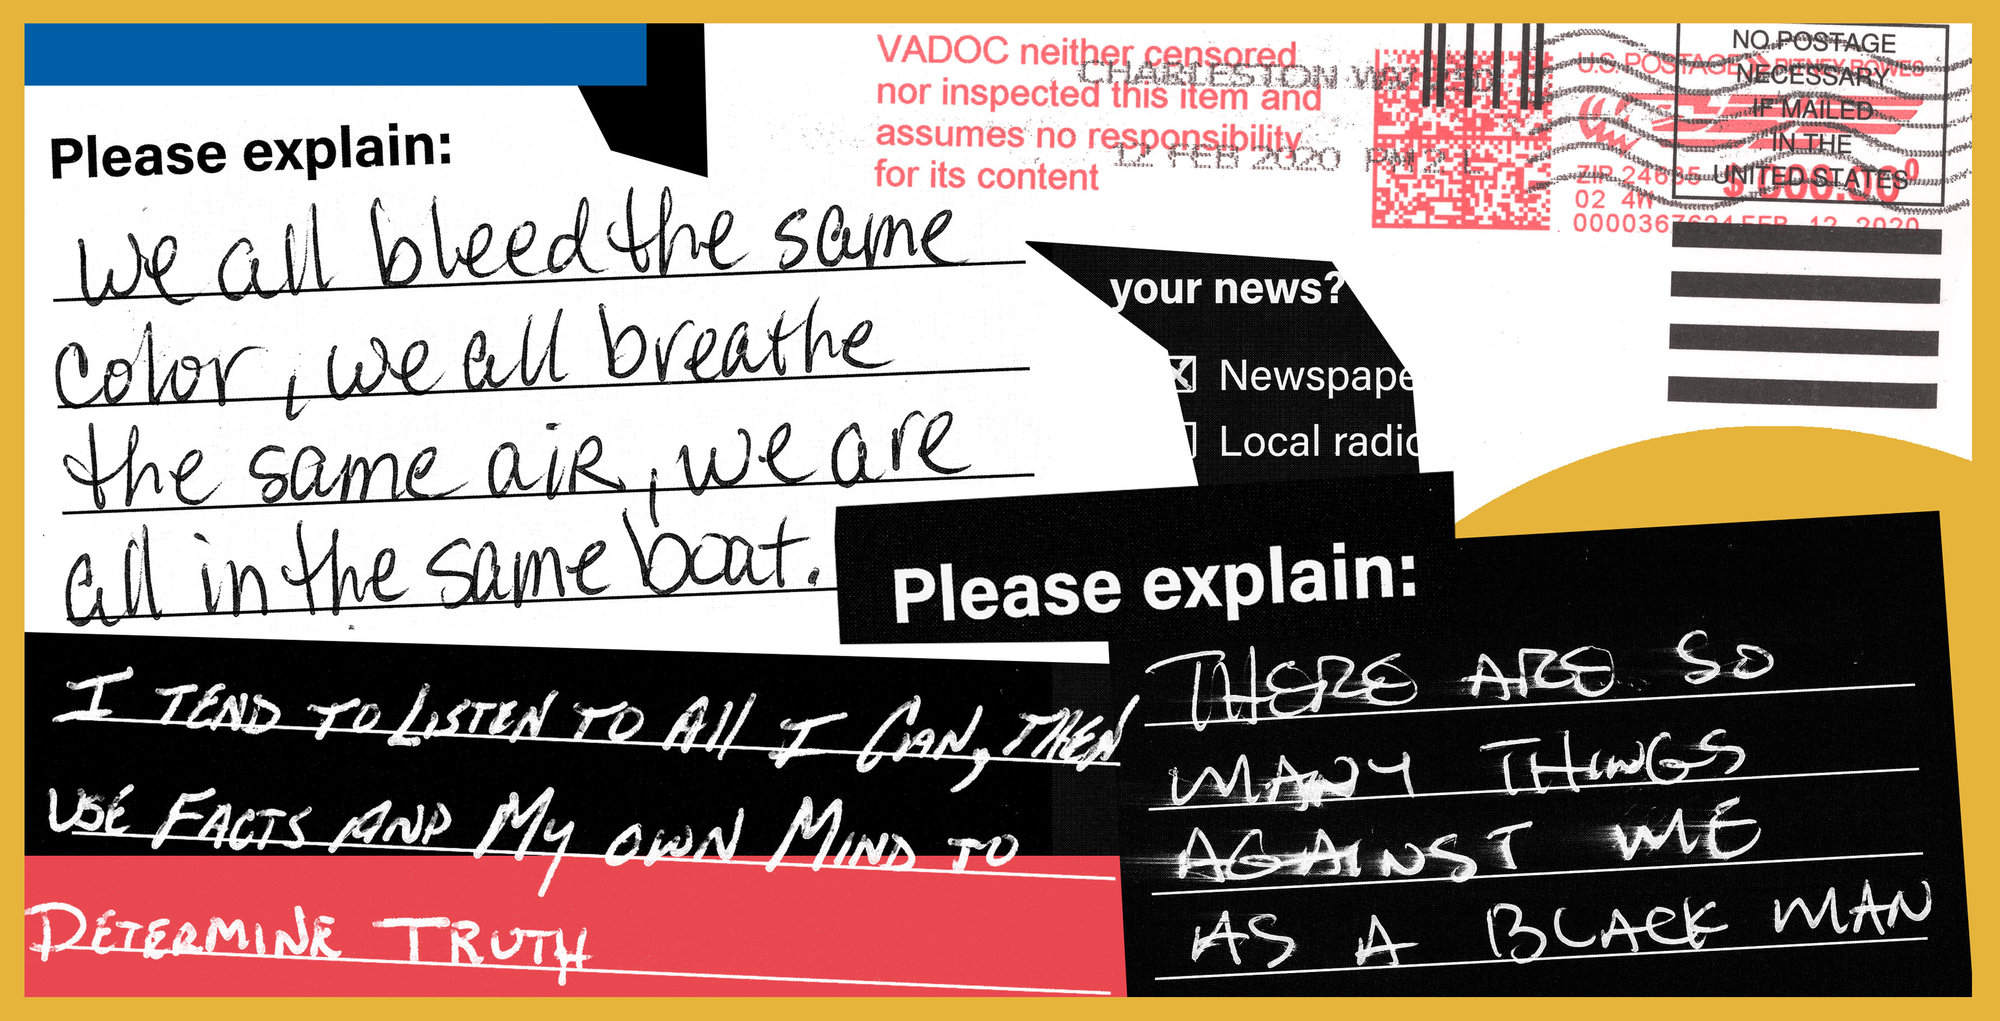 Please explain:
we all bleed the same
color, we all breathe
the same aiR, we are
all in the same boat.
VADOC neither censored
nor inspected this item and
assumes no responsibility
for its content
CHARLESTON WV
12 FEB 2020 PM 2 L
U.S. POSTAGE PITNEY BOWES
ZIP 24635
02 4W
FEB 12 2020
NO POSTAGE
NECESSARY
IF MAILED
IN THE
UNITED STATES
your news?
Newspape
Local radio
Please explain:
THERE ARE SO
MANY THINGS
AGAINST ME
AS A BLACK MAN
I TEND TO LISTEN TO All I CAN, THEN
USE FACTS AND MY OWN MIND TO
DETERMINE TRUTH